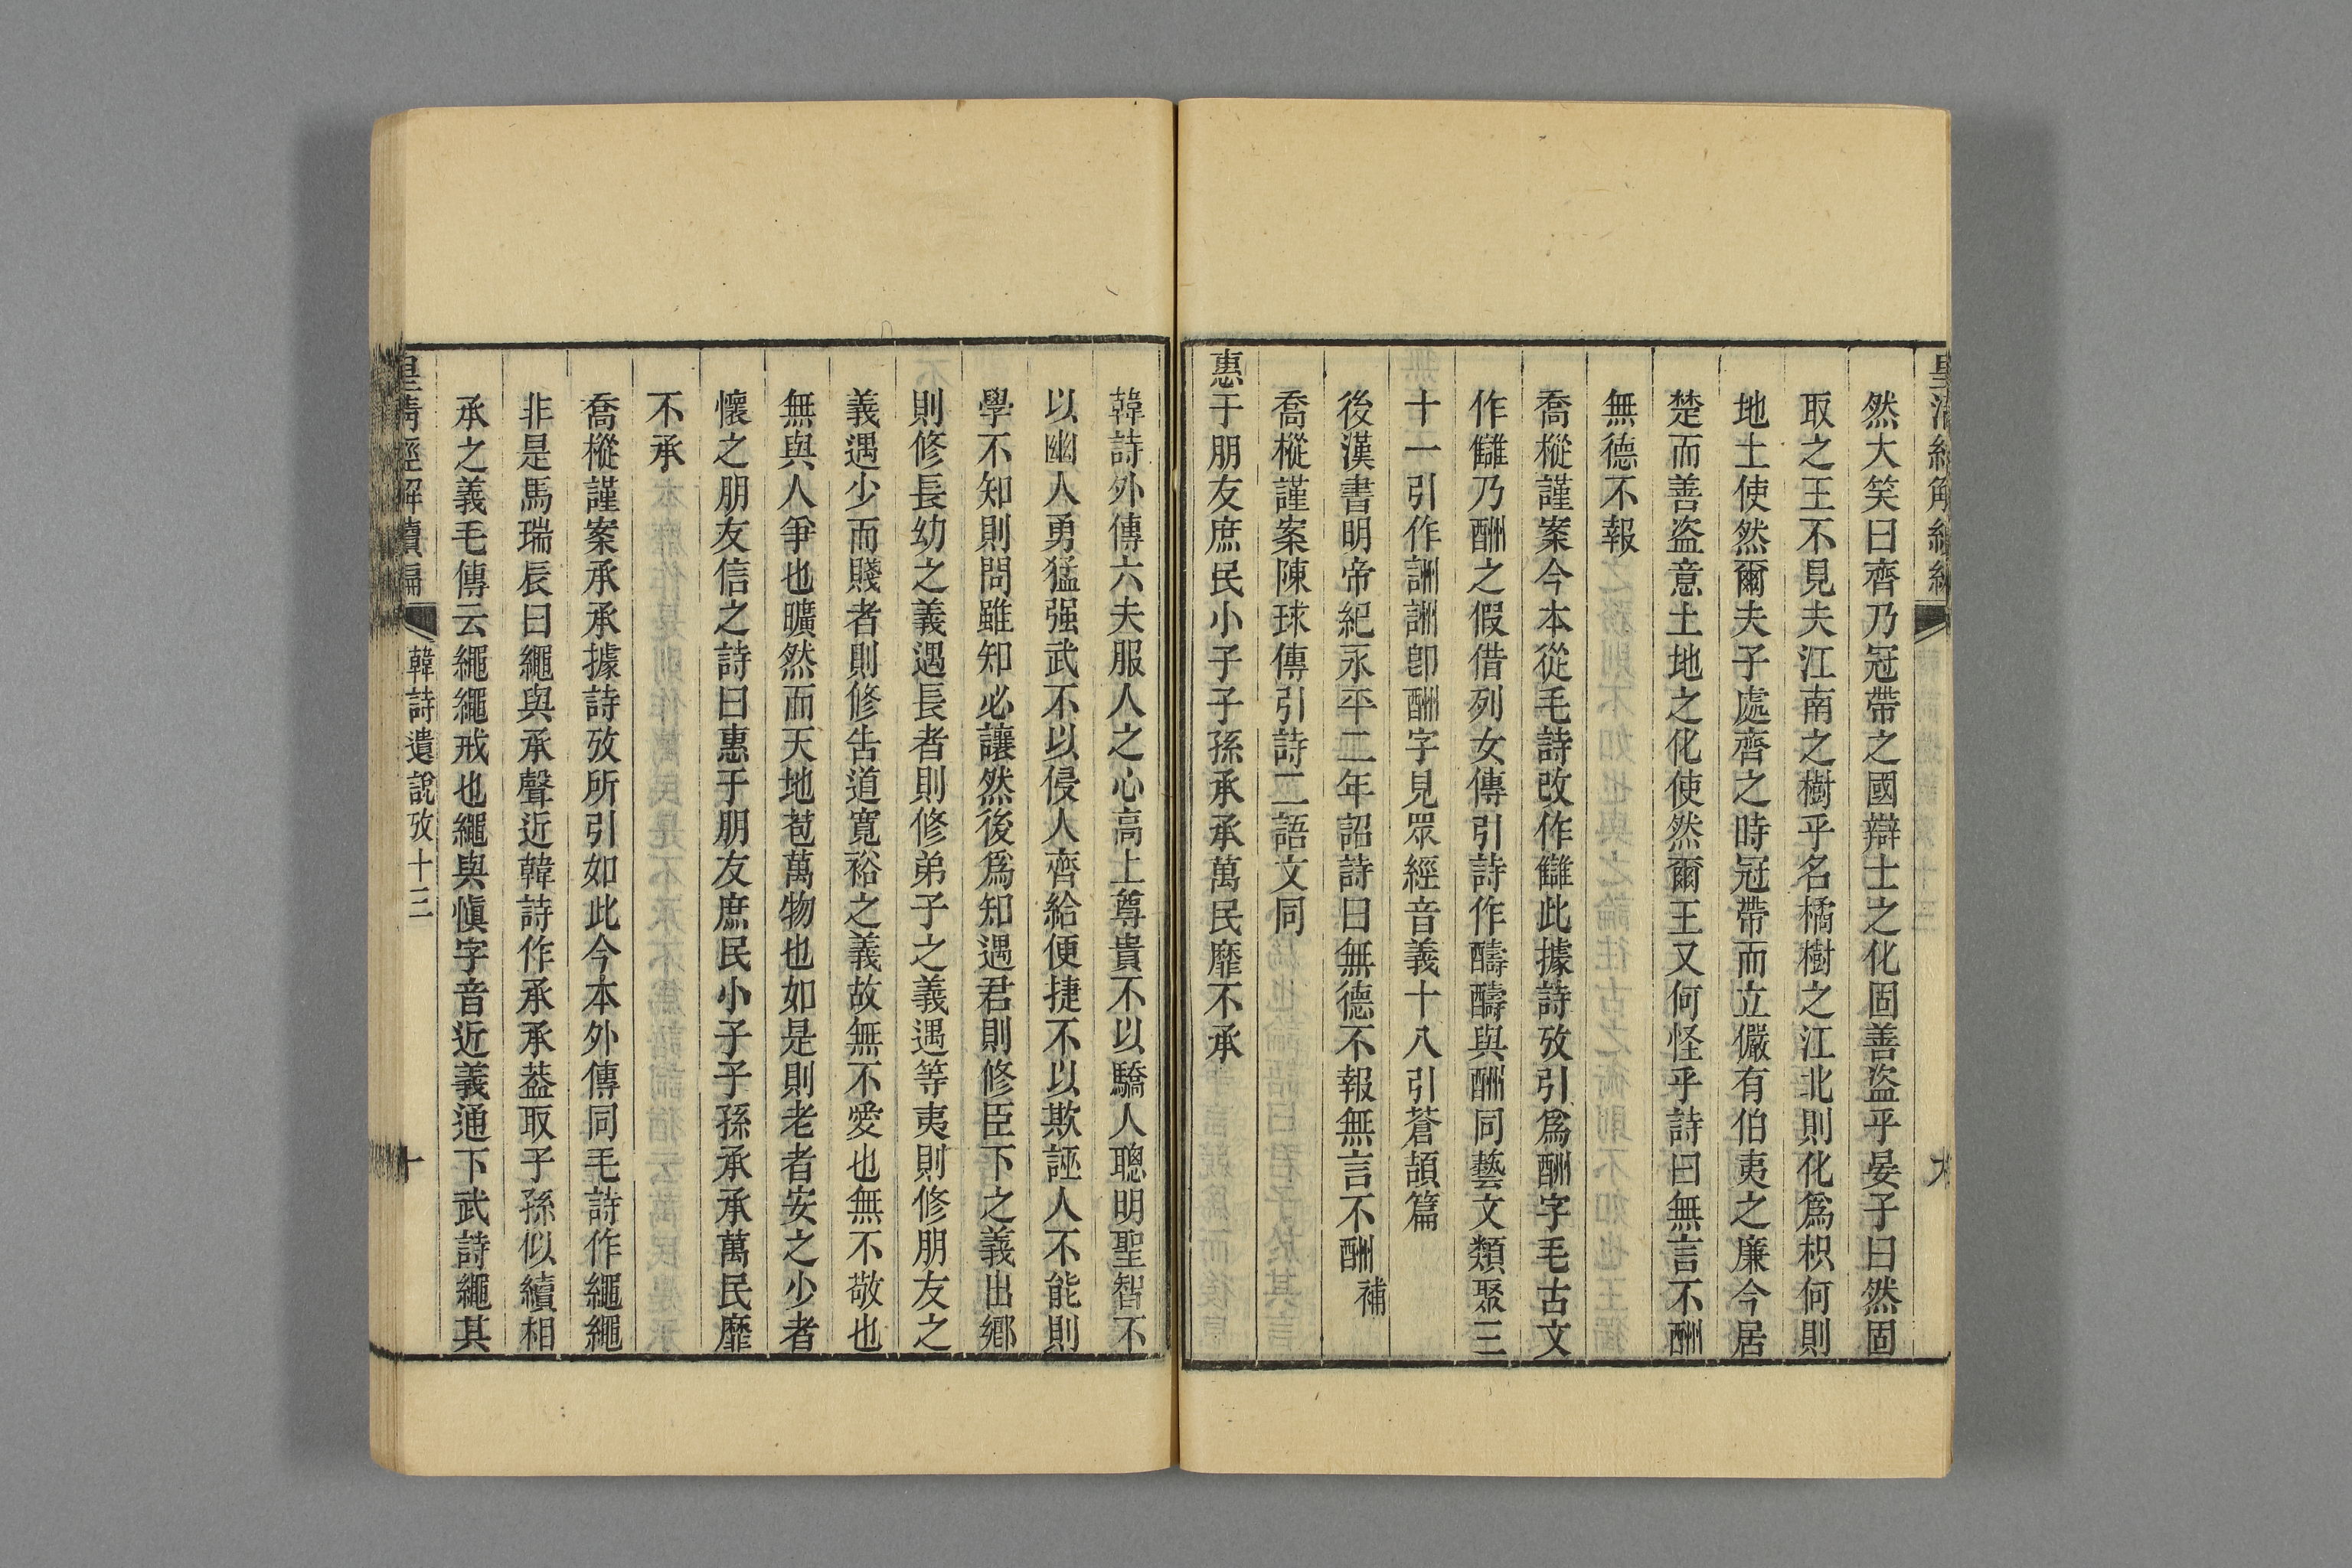 然大笑曰齊乃冠帶之國辯士之化固善盜乎晏子曰然固
取之王不見夫江南之樹乎名橘樹之江北則化爲枳何則
地土使然爾夫子處齊之時冠帶而立儼有伯夷之廉今居
楚而善盜意土地之化使然爾王又何怪乎詩曰無言不酬
無德不報
喬樅謹案今本從毛詩改作讎此據詩攷引爲酬字毛古文
作讎乃酬之假借列女傳引詩作醻醻與酬同藝文類聚三
十一引作詶詶卽酬字見眾經音義十八引蒼頡篇
後漢書明帝紀永平二年詔詩曰無德不報無言不酬補
喬樅謹案陳球傳引詩二語文同
惠于朋友庶民小子子孫承承萬民靡不承
韓詩外傳六夫服人之心高上尊貴不以驕人聰明聖智不
以幽人勇猛强武不以侵人齊給便捷不以欺誣人不能則
學不知則問雖知必讓然後爲知遇君則修臣下之義出鄉
則修長幼之義遇長者則修弟子之義遇等夷則修朋友之
義遇少而賤者則修告道寬裕之義故無不愛也無不敬也
無與人爭也曠然而天地苞萬物也如是則老者安之少者
懷之朋友信之詩曰惠于朋友庶民小子子孫承承萬民靡
不承
喬樅謹案承承據詩攷所引如此今本外傳同毛詩作繩繩
非是馬瑞辰曰繩與承聲近韓詩作承承葢取子孫似續相
承之義毛傳云繩繩戒也繩與愼字音近義通下武詩繩其
皇清經解續編 韓詩遺說攷十三 十